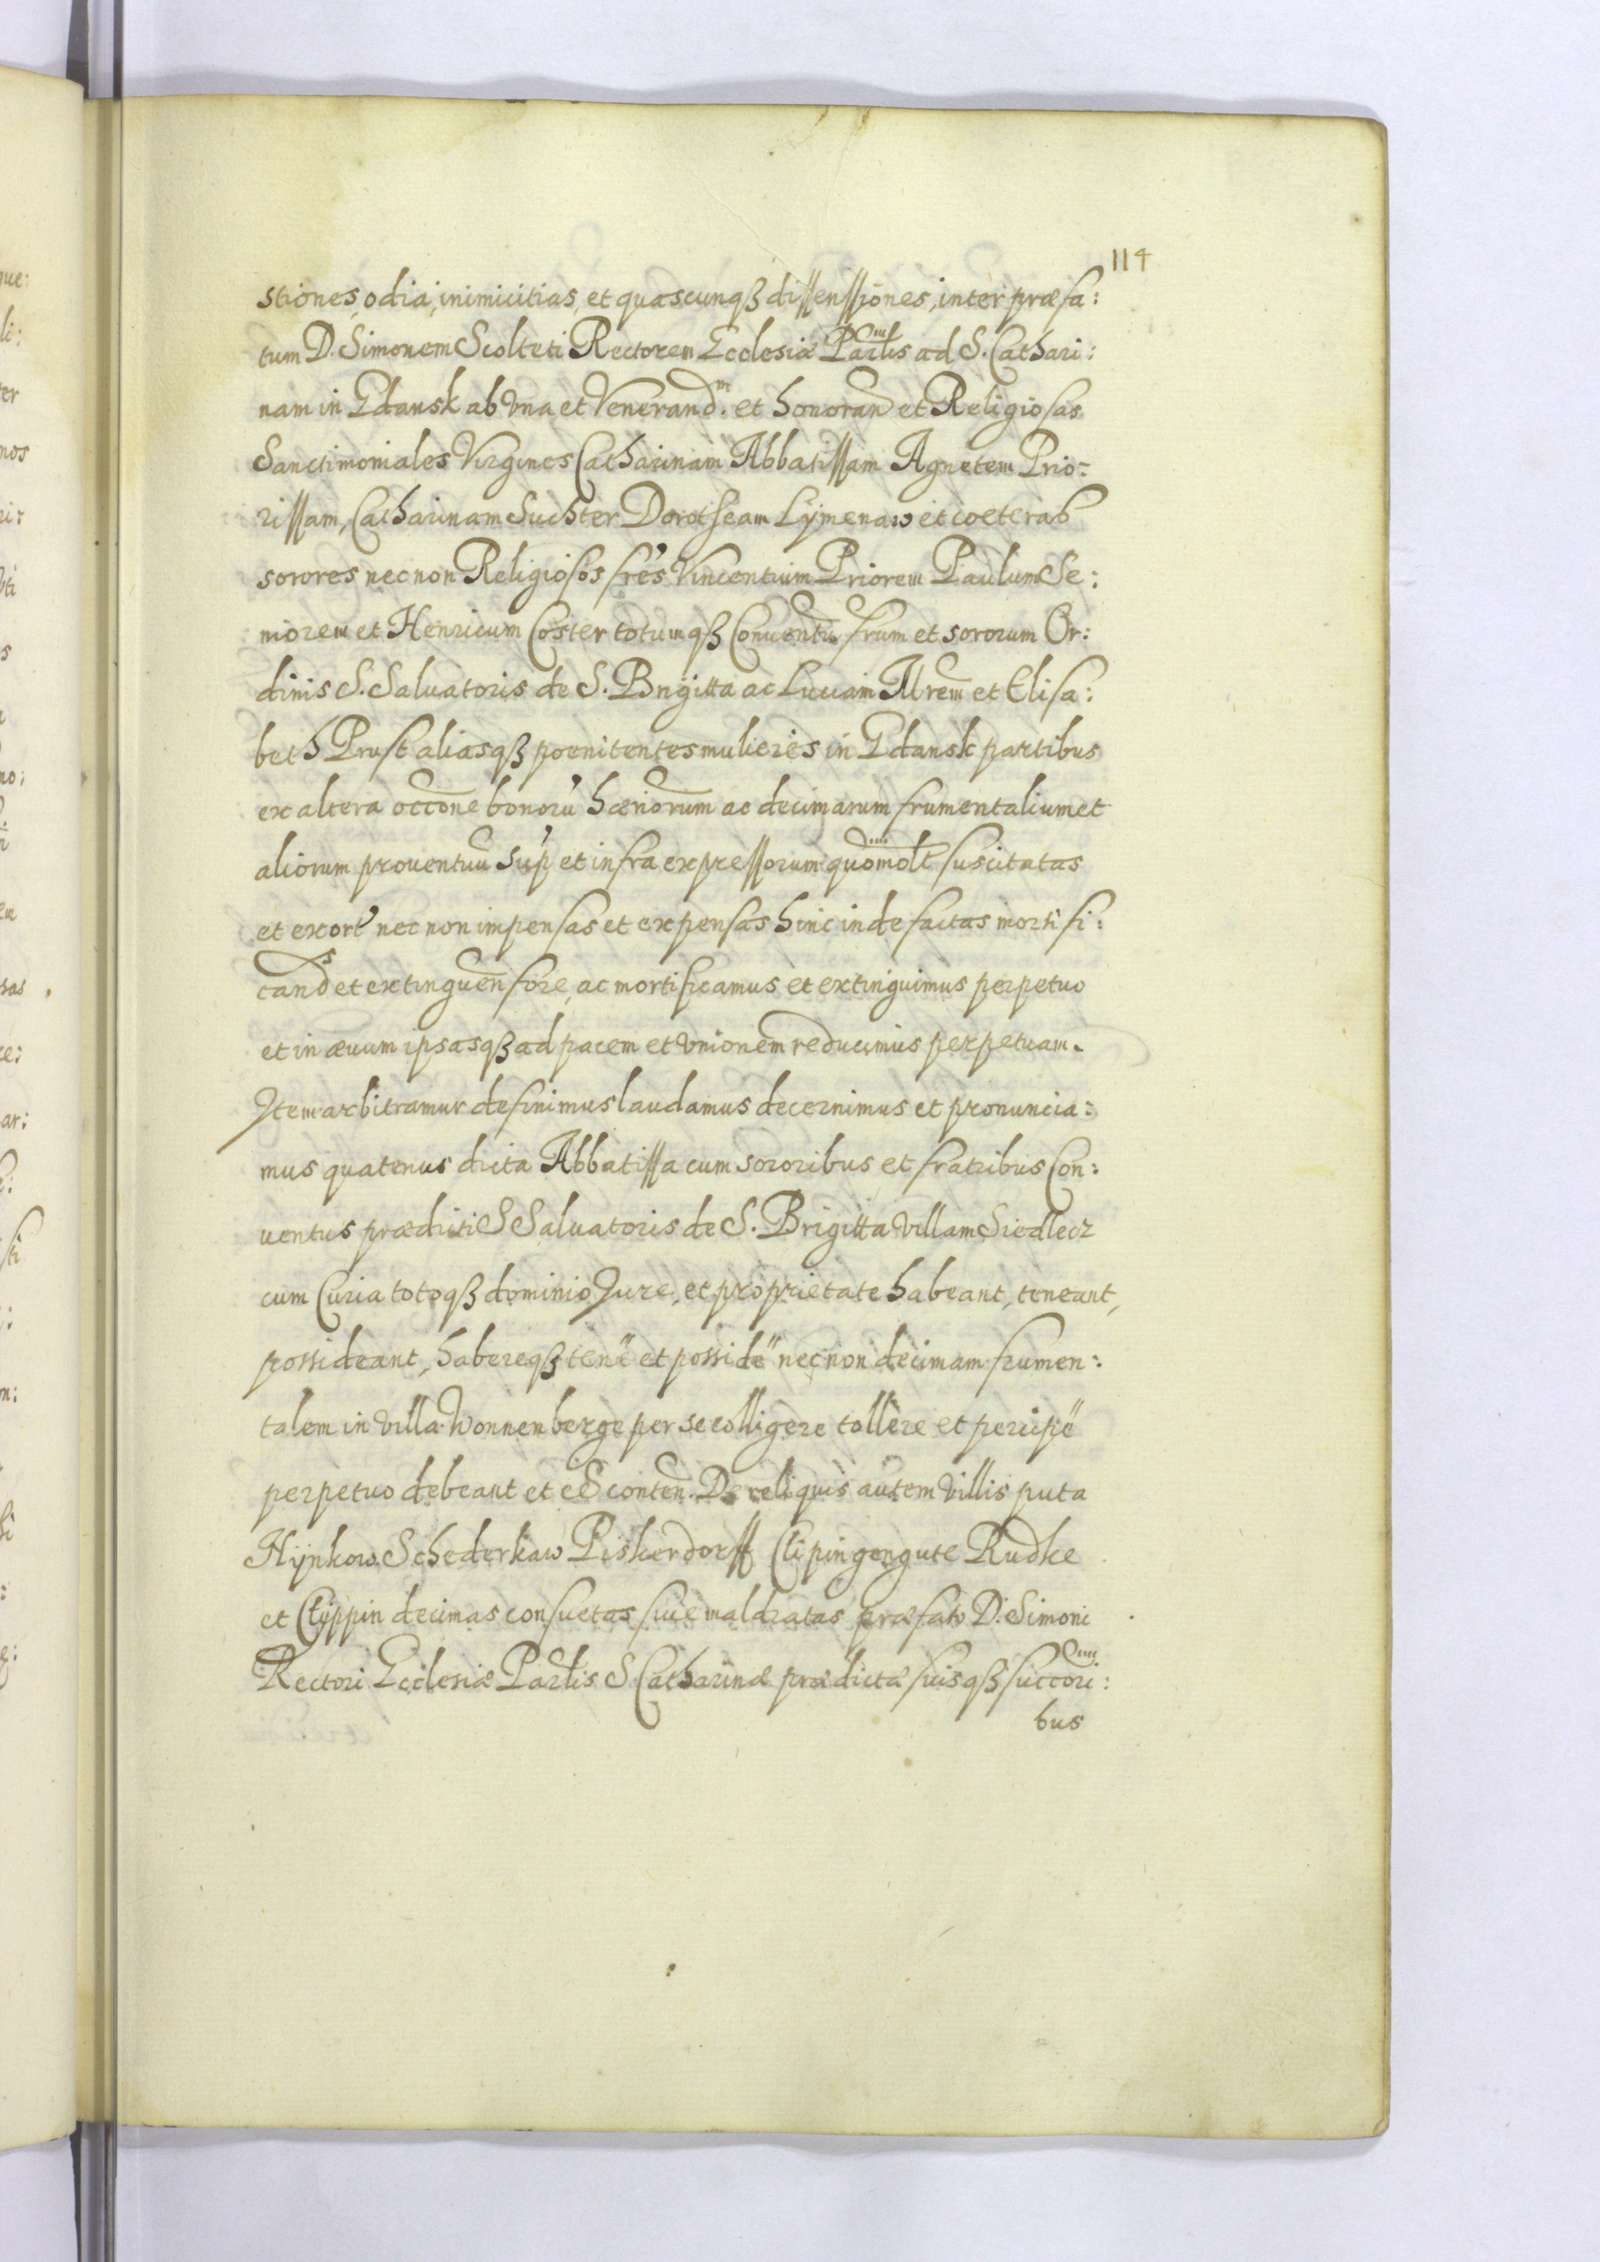 114
stiones, odia, inimicitias, et quascunqß dissenssiones, inter præfa:
tum D. Simonem Scolteti Rectorem Ecclesiæ Parlis ad S. Cathari:
nam in Gdansk ab vna et Venerand.m et honoran et Religiosas
Sanctimoniales Virgines Catharinam Abbatissam Agnetem Prio:
rissam, Catharinam Suchter Dorotheam Lÿmenaw et coeteras
sorores nec non Religiosos frēs Vincentium Priorem Paulum Se:
niorem et Henricum Coster totumqß Conuentū frum et sororum Or:
dinis S. Saluatoris de S. Brigitta ac Luciam Mrem et Elisa:
beth Prust aliasqß poenitentes mulieres in Gdansk partibus
ex altera occōne bonorū hæriorum ac decimarum frumentalium et
aliorum prouentuū sup et infra expressorum quōmolt suscitatas
et exort nec non impensas et expensas hinc inde factas mortifi:
cands et extinguen fore, ac mortificamus et extinguimus perpetuo
et in æuum ipsasqß ad pacem et vnionem reducimus perpetuam.
Item arbitramur definimus laudamus decernimus et pronuncia:
mus quatenus dicta Abbatissa cum sororibus et fratribus Con:
uentus prædicti S Saluatoris de S. Brigitta villam Siedlecz
cum Curia totoqß dominio Jure, et proprietate habeant, teneant,
possideant, habereqß tenē et possidē nec non decimam frumen:
talem in villa Wonnenberge per se colligere tollere et percipē
perpetuo debeant et eē conten. De reliquis autem villis puta
Hÿnkow Schederkaw Piskerdorff Clipingengute Rudke
et Clÿppin decimas consuetas siue maldratas præfato D. Simoni
Rectori Ecclesiæ Parlis S Catharinæ prædictæ suisqß succori:
bus